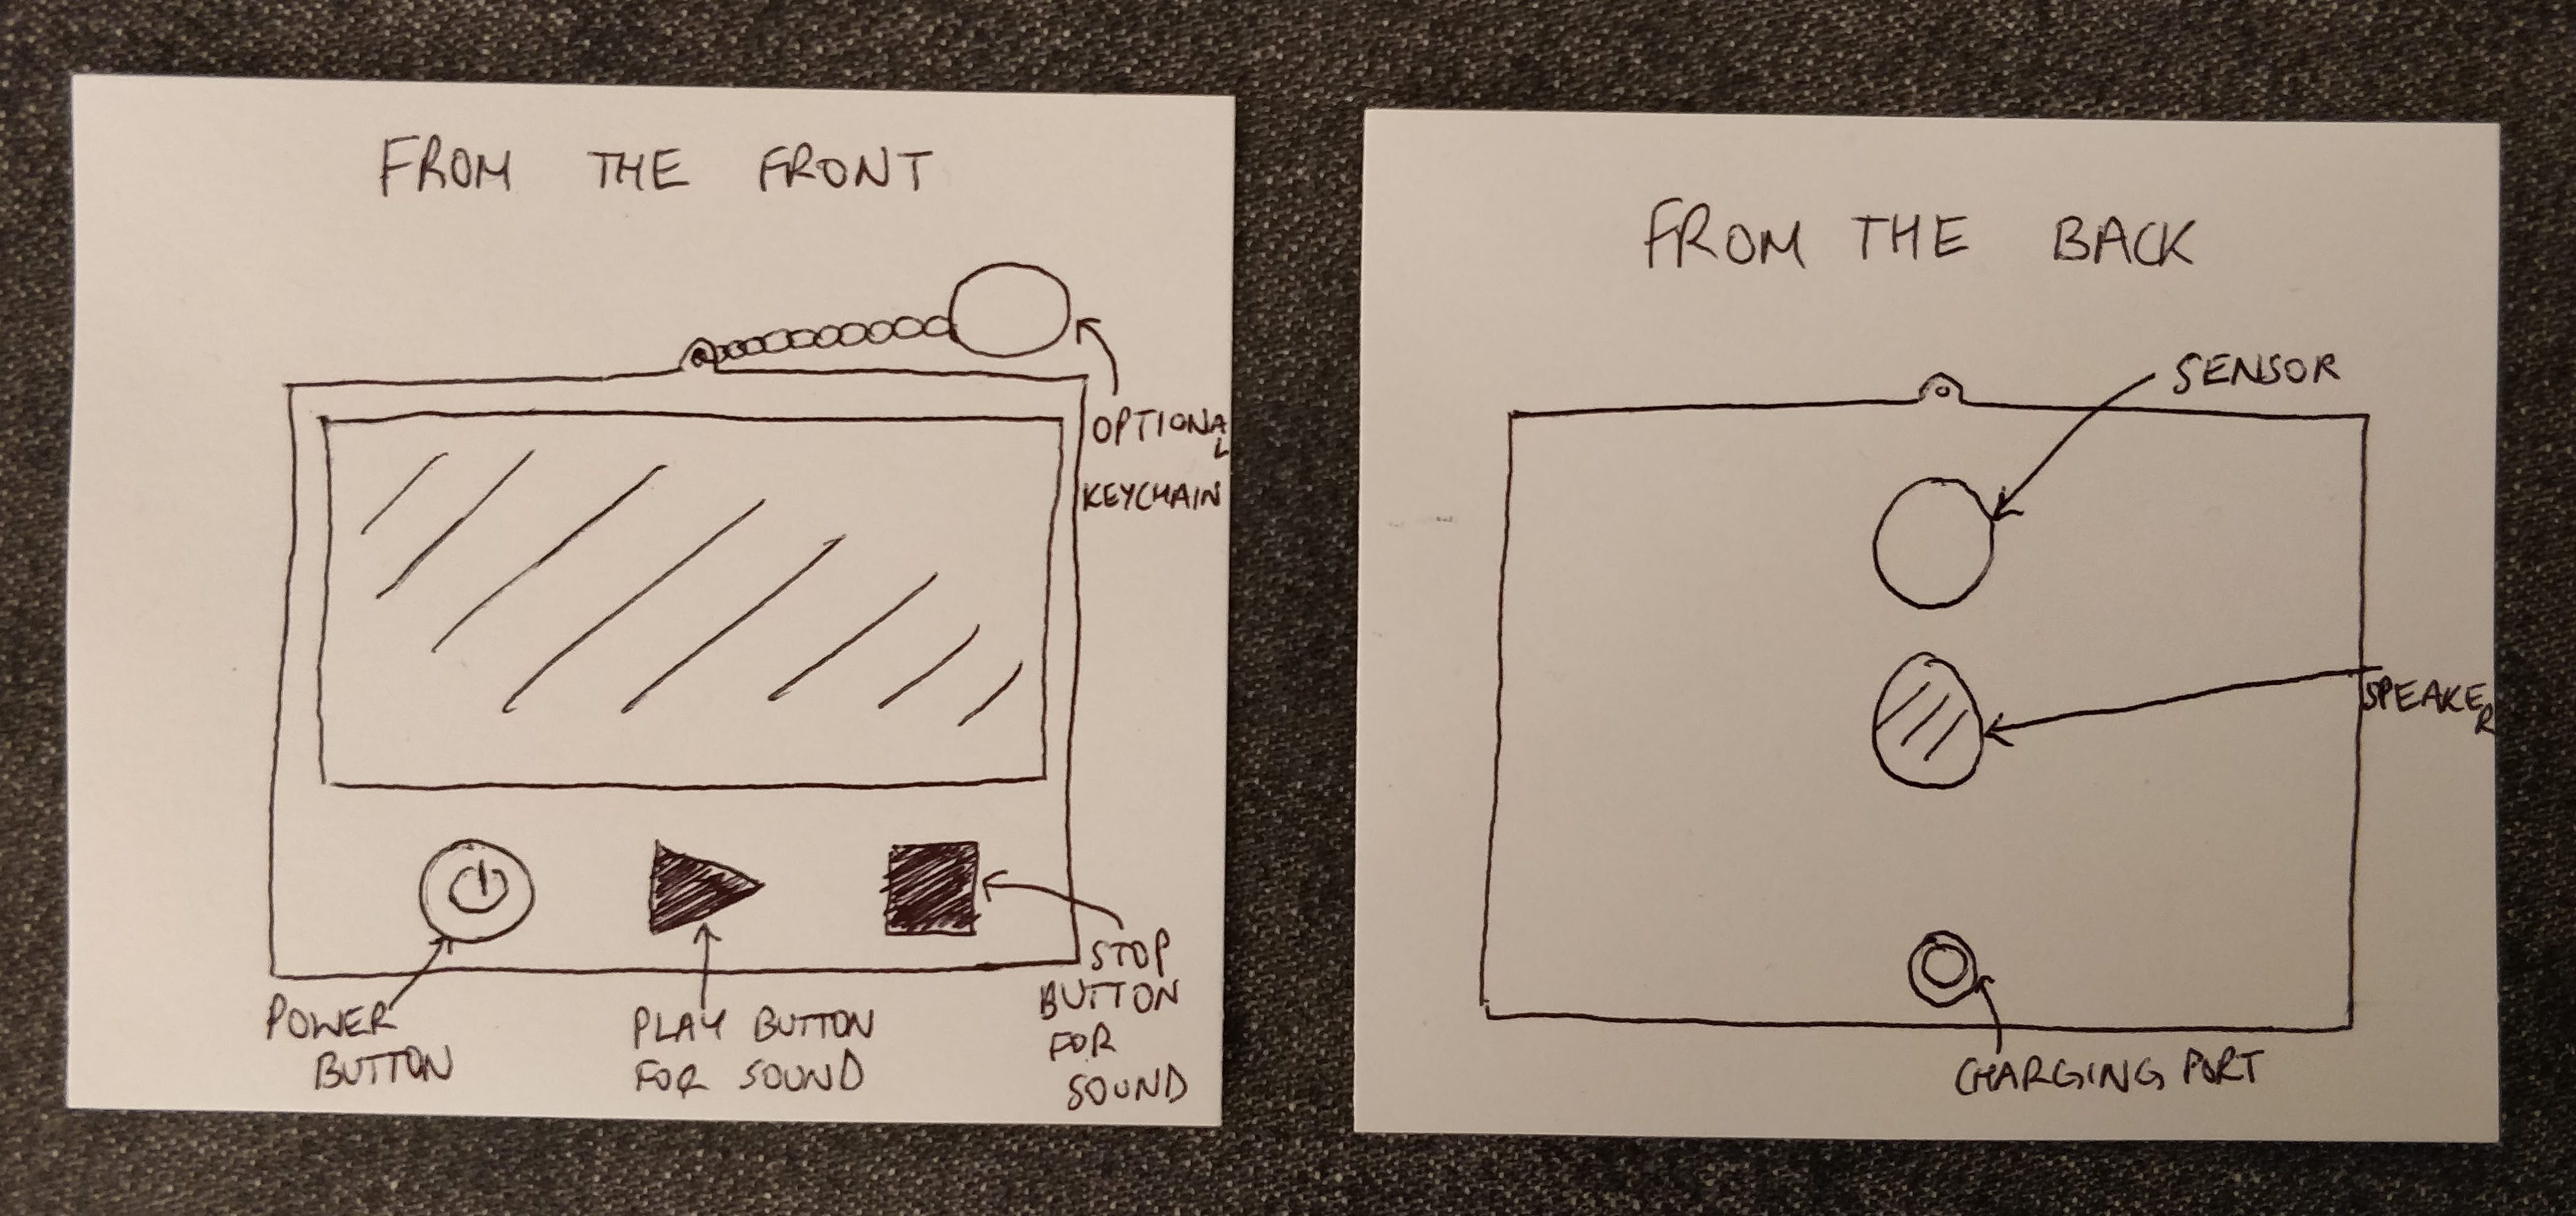 FROM THE FRONT
OPTIONAL
KEYCHAIN
POWER
BUTTON
PLAY BUTTON
FOR SOUND
STOP
BUTTON
FOR
SOUND
FROM THE BACK
SENSOR
SPEAKER
CHARGING PORT